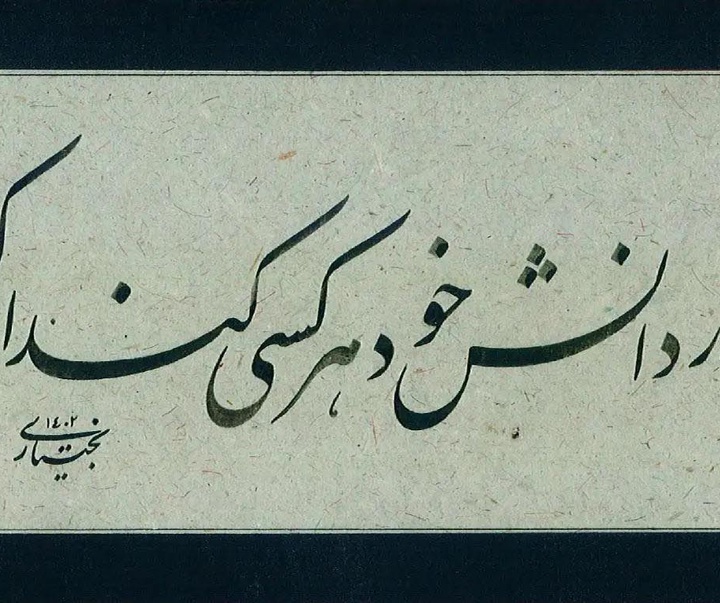 ر دانش خود هر کسی کند ا
۱۴۰۲
بختیاری